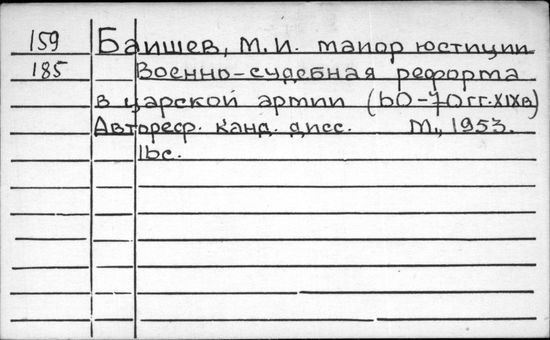 159 Баишев, М.И. майор юстиции
185 Военно-судебная реформа
в царской армии (60-70 гг. XIX в)
Автореф. канд. дисс. М., 1953.
16с.